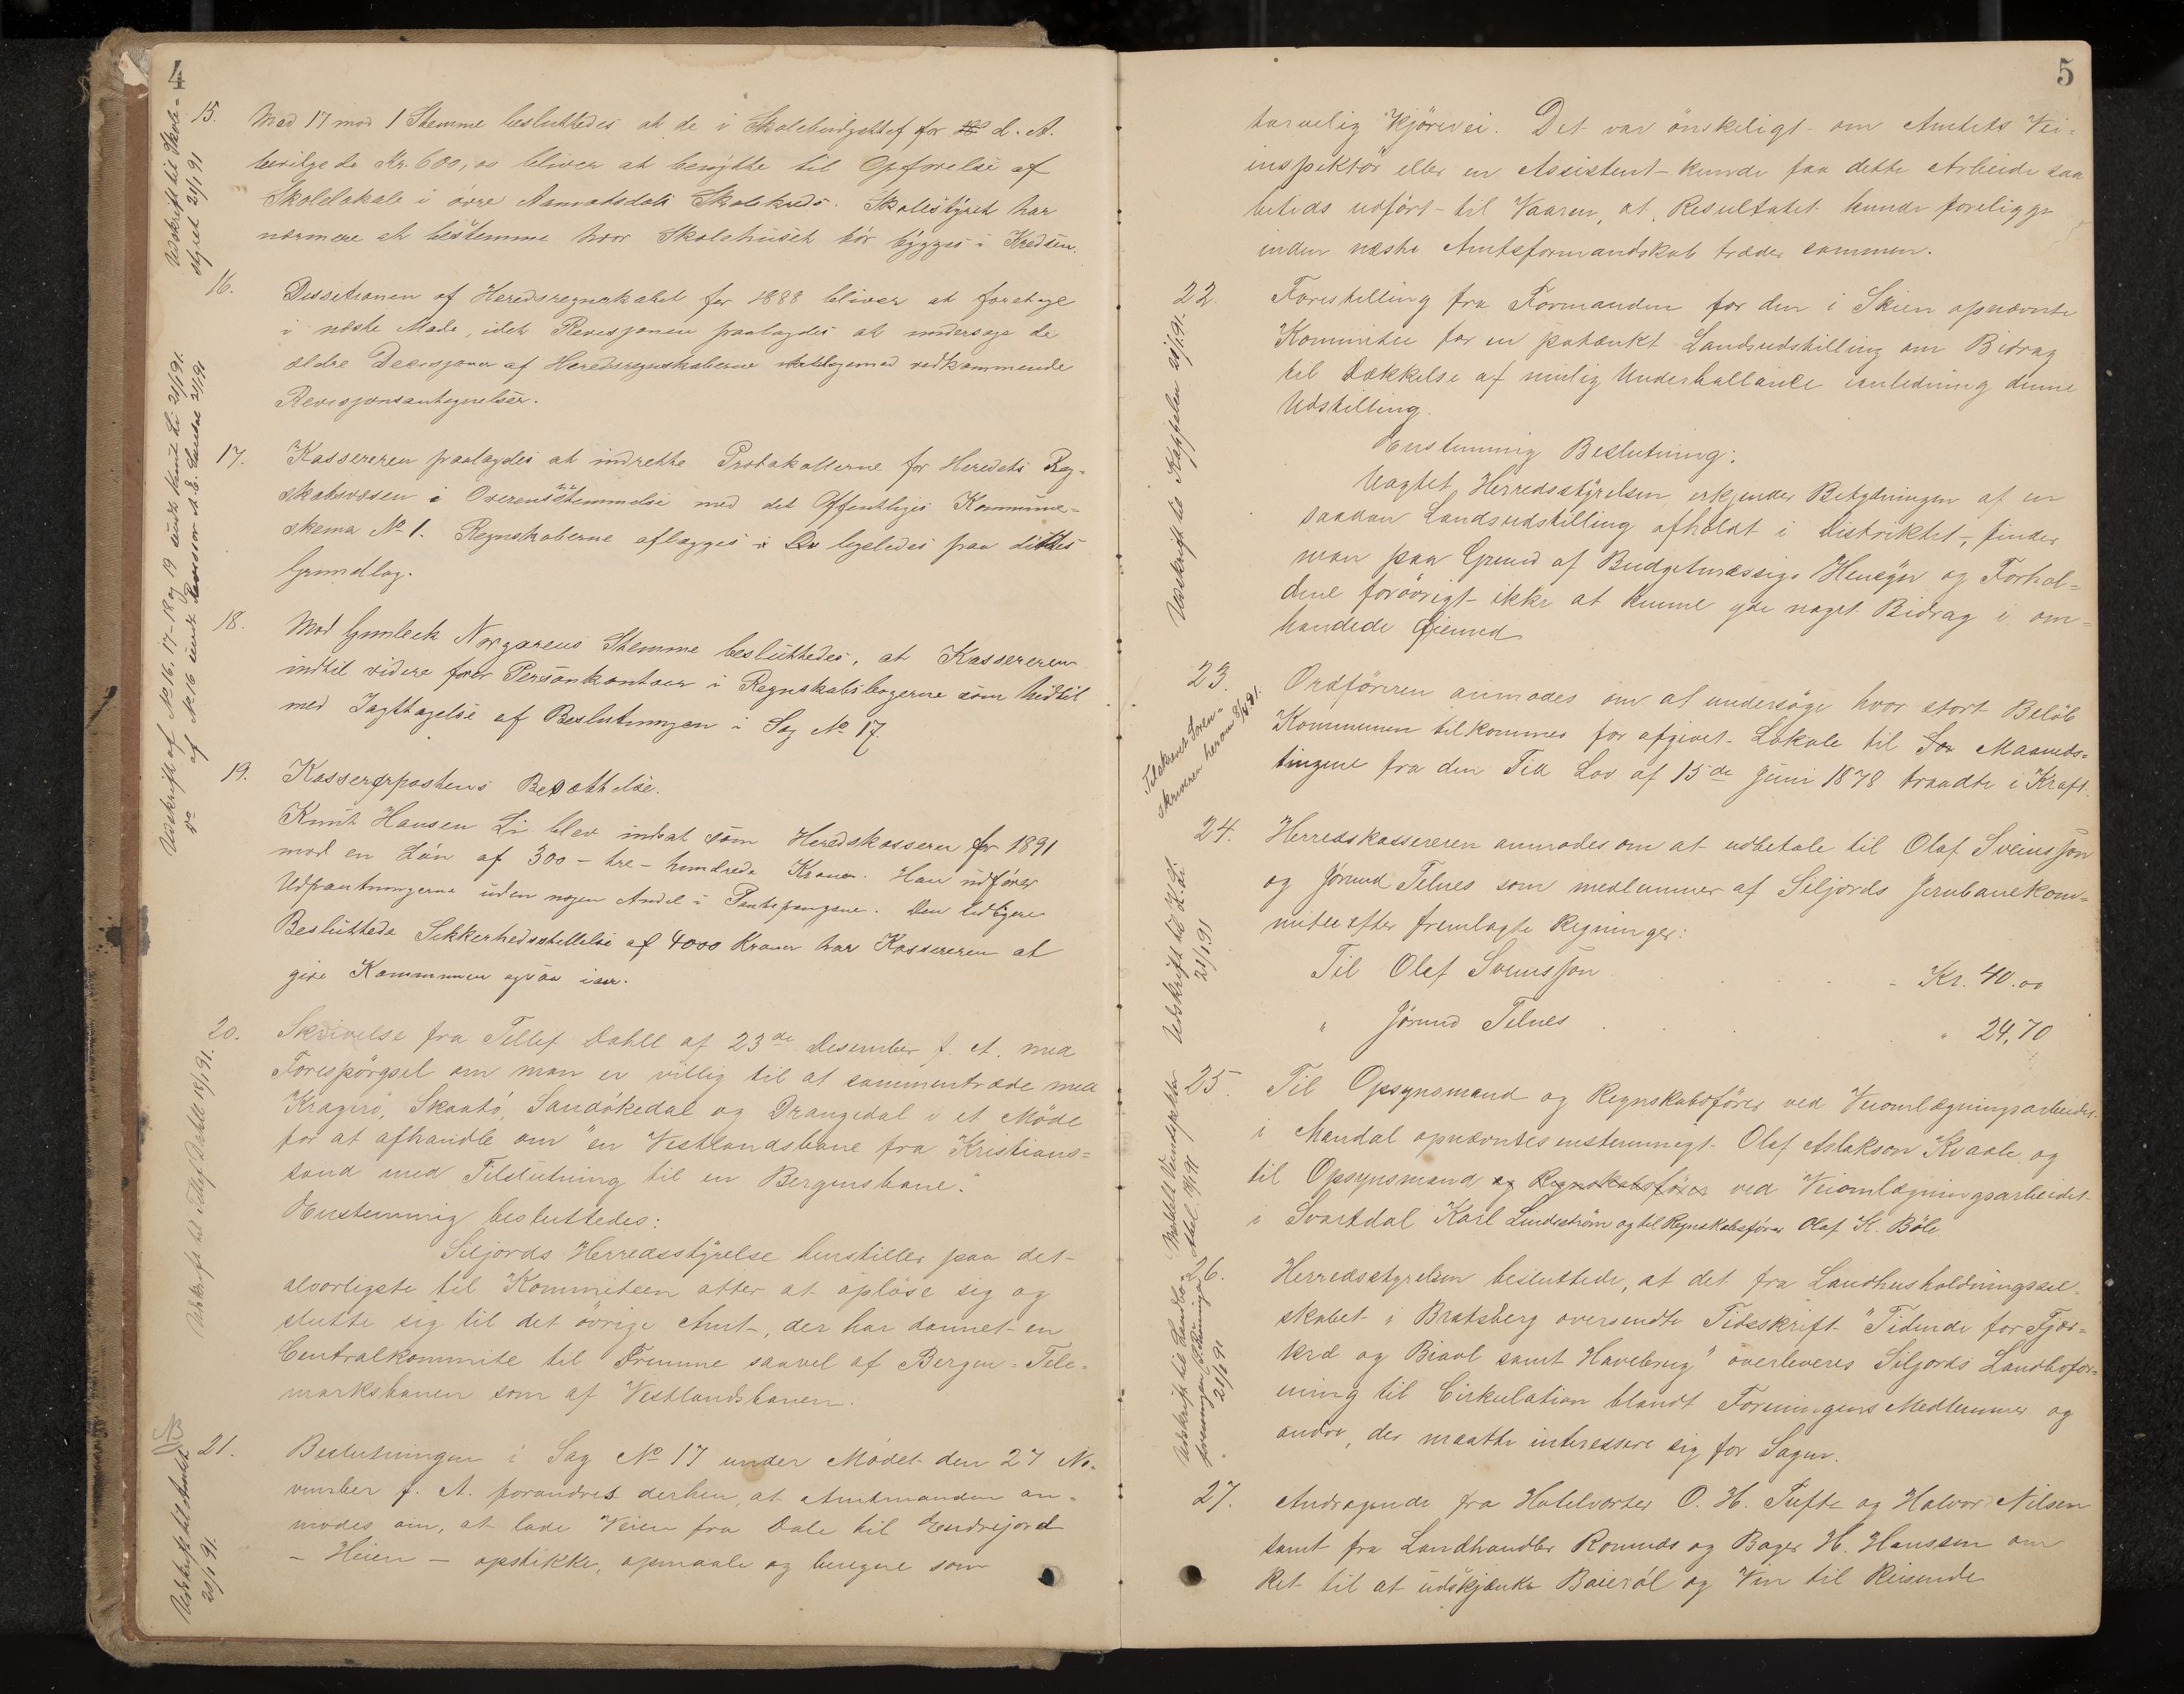 4
Udskrift til Skole-
styret 21/1 91
15. Med 17 mod 1 Stemme besluttedes at de i Skolebudgettet for d. A.
bevilgede Kr. 600,00 bliver at benytte til Opførelse af
Skolelokale i øvre Aamotsdals Skolekreds. Skolestyret har
nærmere at bestemme hvor Skolehuset bör bygges i Kredsen.
Udskrift af No 16, 17-18 og 19 Knut Li 21/1 91.
Do af No 16 Revisor 21/1 91
16. Desisionen af Heredsregnskabet for 1888 bliver at foretage
i næste Møde, idet Revisjonen paalagdes at undersøge de
ældre Desisjoner af Heredsregnskaberne vedkommende
Revisjonsantegnelser.
17. Kassereren paalagdes at indrette Protokollerne for Heredets Reg-
skabsvæsen i Overensstemmelse med det Offentliges Kommune-
skema No 1. Regnskaberne aflægges ligeledes paa dettes
Grundlag.
18. Mod Gunleik Norgarens Stemme besluttedes, at Kassereren
indtil videre fører Personkontoer i Regnskabsbøgerne som hidtil
med Iagttagelse af Beslutningen i Sag No 17.
19. Kassererpostens Besættelse.
Knut Hansen Li blev indsat som Heredskasserer for 1891
mod en Løn af 300 - tre - hundrede Kroner. Han udfører
Udpantningerne uden nogen Andel i Pantepengene. Den tidligere
Besluttede Sikkerhedsstillelse af 4000 Kroner har Kassereren at
give Kommunen ogsaa iaar.
Udskrift til Tellef Dahll 19/1 91.
20. Skrivelse fra Tellef Dahll af 23de Desember f. A. med
Forespörgsel om man er villig til at sammentræde med
Kragerö, Skaatö, Sandökedal og Drangedal i et Möde
for at afhandle om "en Vestlandsbane fra Kristians-
sand med Tilslutning til en Bergensbane."
Enstemmig besluttedes:
Siljords Herredsstyrelse henstiller paa det
alvorligste til Kommiteen atter at oplöse sig og
slutte sig til det övrige Amt, der har dannet en
Centralkommite til Fremme saavel af Bergen-Tele-
marksbanen som af Vestlandsbanen.
NB
Udskrift til Amtet
20/1 91.
21. Beslutningen i Sag No 17 under Mödet den 27 No-
vember f. A. forandres derhen, at Amtmanden an-
modes om, at lade Veien fra Dale til Endrejord
- Heien - opstikke, opmaale og beregne som
5
tarvelig Kjörevei. Det var önskeligt om Amtets Vei-
inspektör eller en Assistent kunde faa dette Arbeide saa
betids udfört til Vaaren, at Resultatet kunde foreligge
inden næste Amtsformandskab træder sammen.
Udskrift til Kappelen 21/1 91.
22. Forestilling fra Formanden for den i Skien opnævnte
Kommitee for en paatænkt Landsudstilling om Bidrag
til Dækkelse af mulig Underballance ianledning denne
Udstilling.
Enstemmig Beslutning:
Uagtet Herredsstyrelsen erkjender Betydningen af en
saadan Landsudstilling afholdt i Distriktet, finder
man paa Grund af Budgetmæssige Hensyn og Forhol-
dene forövrigt ikke at kunne yde noget Bidrag i om-
handlede Öiemed
Tilskrevet Soren-
skriveren herom
23. Ordföreren anmodes om at undersöge hvor stort Belöb
Kommunen tilkommes for afgivet Lokale til Maaneds-
tingene fra den Tid Lov af 15de Juni 1878 traadte i Kraft.
Udskrift til K. Li.
21/1 91
24. Herredskassereren anmodes om at udbetale til Olaf Sveinsson
og Jörund Telnes som medlemmer af Siljords Jernbanekom-
mitee efter fremlagte Regninger:
Til Olaf Sveinsson . . . . Kr. 40.00
" Jörund Telnes . . . " 24,70
Meddelt Veiinspektör
25. Til Opsynsmand og Regnskabsförer ved Veiomlægningsarbeidet
i Mandal opnævntes enstemmigt Olaf Aslakson Kvaale og
til Opsynsmand og Regnskabsförer ved Veiomlægningsarbeidet
i Svartdal Karl Lindström og til Regnskabsförer Olaf K. Böle
Udskrift til Landbo-
foreningen
21/1 91
26. Herredsstyrelsen besluttede, at det fra Landhusholdningssel-
skabet i Bratsberg oversendte Tidsskrift "Tidende for Fjær-
kræ og Biavl samt Havebrug" overleveres Siljords Landbofor-
ening til Cirkulation blandt Foreningens Medlemmer og
andre, der maatte interessere sig for Sagen.
27. Andragende fra Hotelværter O. H. Tufte og Halvor Nilsen
samt fra Landhandler Romnds og Bager H. Hanssen om
Ret til at udskjænke Baieröl og Vin til Reisende